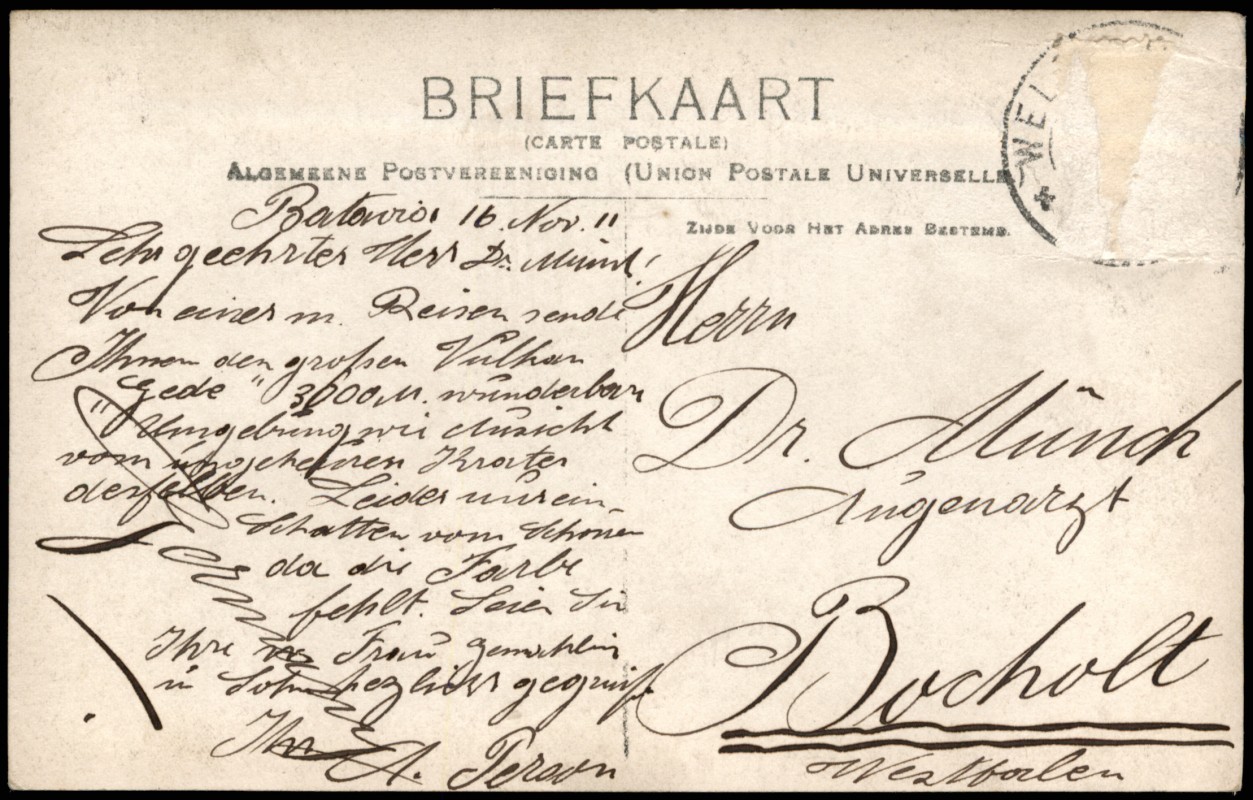 BRIEFKAART
(CARTE POSTALE)
ALGEMEENE POSTVEREENIGING (UNION POSTALE UNIVERSELLE)
ZIJDE VOOR HET ADRES BESTEMD.
WEL
Batavia 16. Nov. 11
Sehr geehrter Herr Dr. Münch!
Von einer m. Reisen sende
Ihnen den großen Vulkan
"Gede" 3000 M. wunderbare
Umgebung wie Aussicht
vom ungeheuren Krater
desselben. Leider nur ein
Schatten vom Schönen
da die Farbe
fehlt. Seien Sie
Ihre Frau Gemahlin
u Sohn herzlichst gegrüßt
Ihr A. Person
Herrn
Dr. Münch
Augenarzt
Bocholt
Westfalen